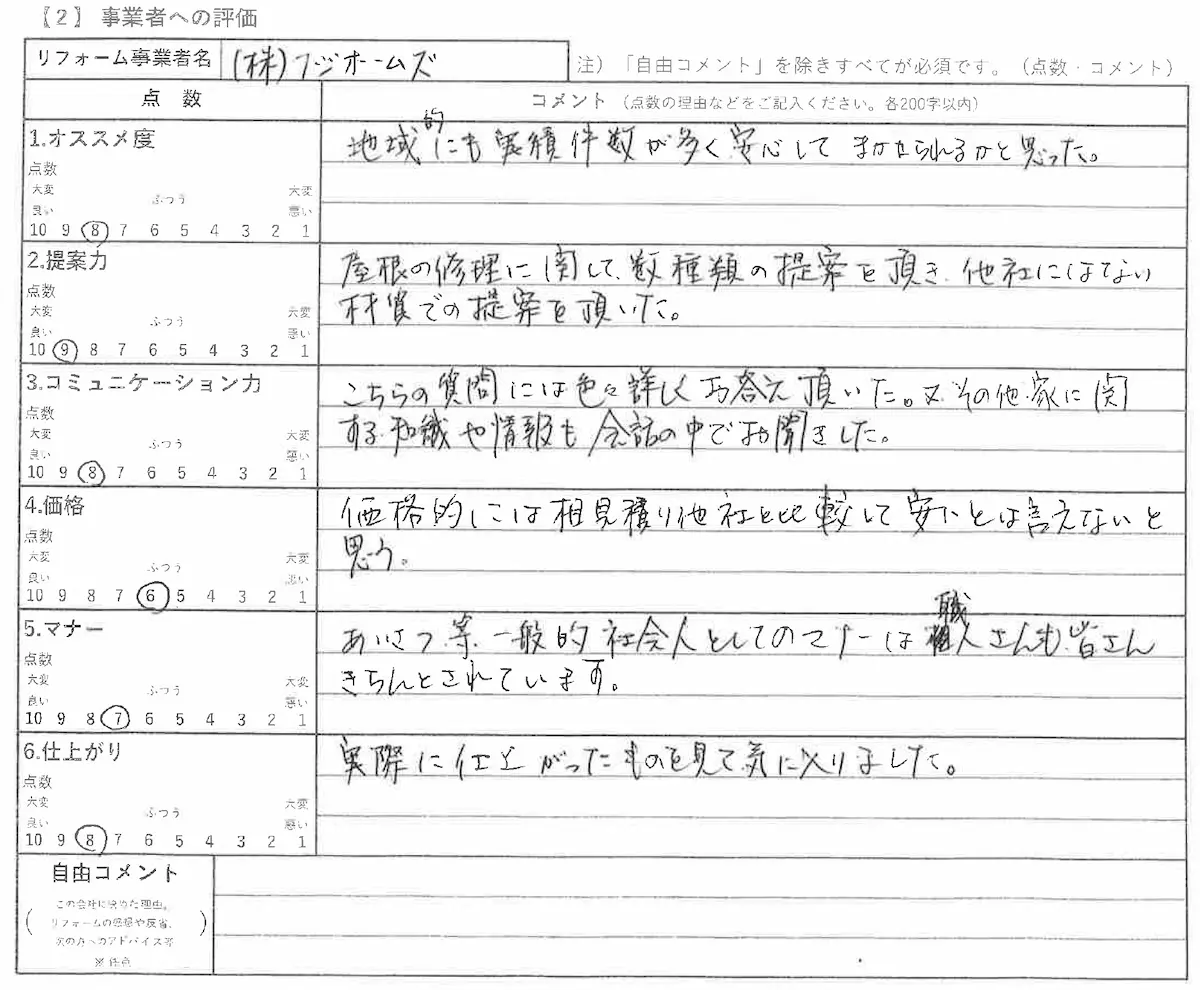 【2】 事業者への評価
リフォーム事業者名 (株)フジホームズ
注)「自由コメント」を除きすべてが必須です。(点数・コメント)
点 数
コメント (点数の理由などをご記入ください。各200字以内)
1.オススメ度
点数
大変良い ふつう 大変悪い
10 9 8 7 6 5 4 3 2 1
地域的にも実績件数が多く安心してまかせられるかと思った。
2.提案力
点数
大変良い ふつう 大変悪い
10 9 8 7 6 5 4 3 2 1
屋根の修理に関して、数種類の提案を頂き、他社にはてない
材質での提案を頂いた。
3.コミュニケーション力
点数
大変良い ふつう 大変悪い
10 9 8 7 6 5 4 3 2 1
こちらの質問には色々詳しくお答え頂いた。又、その他、家に関
する知識や情報も会話の中でお聞きした。
4.価格
点数
大変良い ふつう 大変悪い
10 9 8 7 6 5 4 3 2 1
価格的には相見積り他社と比較して安いとは言えないと
思う。
5.マナー
点数
大変良い ふつう 大変悪い
10 9 8 7 6 5 4 3 2 1
あいさつ等、一般的社会人としてのマナーは職人さんも皆さん
きちんとされています。
6.仕上がり
点数
大変良い ふつう 大変悪い
10 9 8 7 6 5 4 3 2 1
実際に仕上がったものを見て気に入りました。
自由コメント
この会社に決めた理由、
リフォームの感想や反省、
次の方へのアドバイス等
※任意